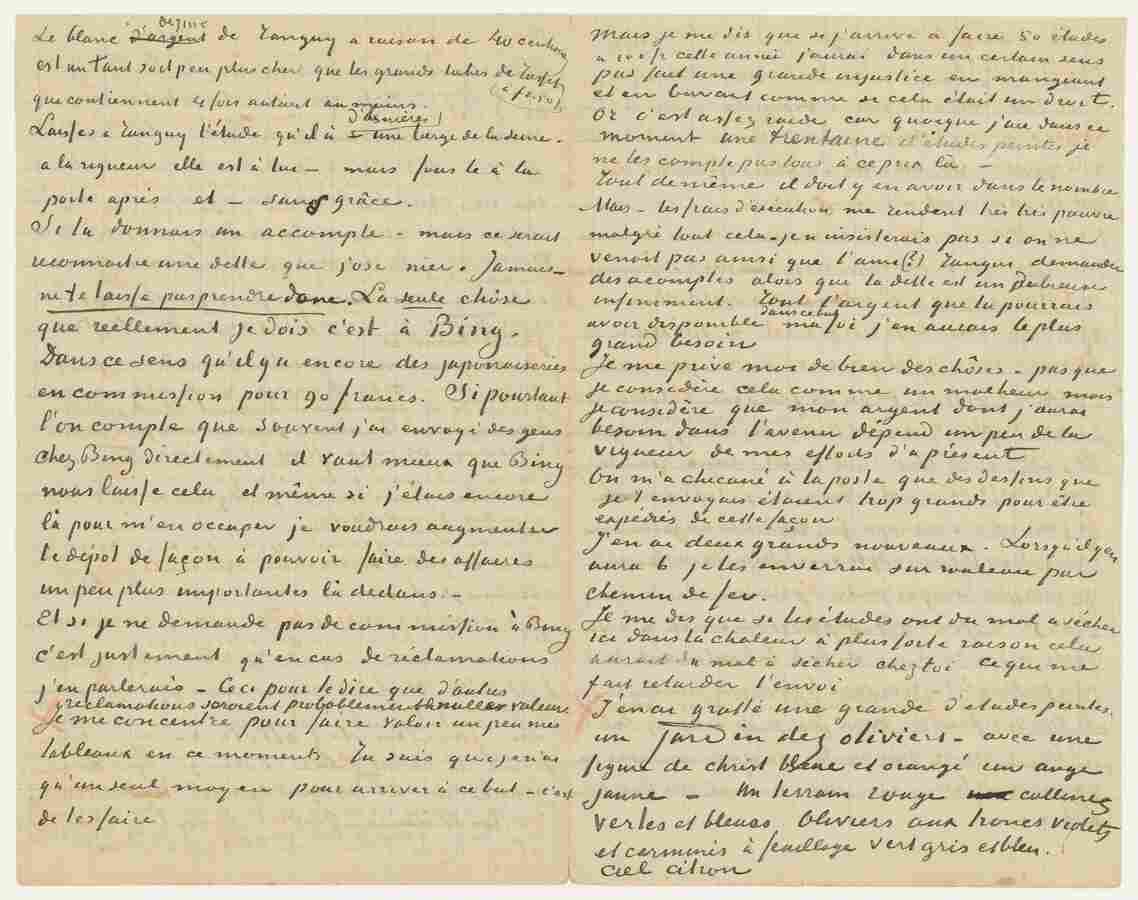 de zinc
Le blanc d'argent de Tanguy a raison de 40 centimes
est un tant soit peu plus cher que les grands tubes de Tasset
(a fr 1.50)
que contiennent 4 fois autant au moins.
d'Asnières!
Laisse à Tanguy l'étude qu'il à une berge de la Seine.
a la rigueur elle est à lui – mais fous le à la
porte après et – sans grâce.
Si tu donnais un accompte – mais ce serait
reconnaitre une dette que j'ose nier. Jamais –
ne te laisse pas prendre donc. La seule chôse
que réellement je dois c'est à Bing.
Dans ce sens qu'il y a encore des japonaiseries
en commission pour 90 francs. Si pourtant
l'on compte que souvent j'ai envoyé des gens
chez Bing directement il vaut mieux que Bing
nous laisse cela et même si j'étais encore
là pour m'en occuper je voudrais augmenter
le dépot de façon à pouvoir faire des affaires
un peu plus importantes là dedans. –
Et si je ne demande pas de commission à Bing
c'est justement qu'en cas de réclamations
j'en parlerais – Ceci pour te dire que d'autres
réclamations seraient probablement nulles valeur
Je me concentre pour faire valoir un peu mes
tableaux en ce moment. Tu sais que je n'ai
qu'un seul moyen pour arriver à ce but – c'est
de les faire
Mais je me dis que si j'arrive à faire 50 études
a 100 fr cette année j'aurai dans un certain sens
pas fait une grande injustice en mangeant
et en buvant comme si cela était un droit.
Or c'est assez raide car quoique j'aie dans ce
moment une trentaine d'études peintes je
ne les compte pas tous à ce prix là. –
Tout de même il doit y en avoir dans le nombre
Mais – les frais d'exécution me rendent très très pauvre
malgré tout cela – je n'insisterais pas si on ne
venoit pas ainsi que l'ami (?) Tanguy demander
des acomptes alors que la dette est un
infiniment. Tout l'argent que tu pourrais
dans ce but
avoir disponible ma foi j'en aurais le plus
grand besoin
Je me prive moi de bien des chôses – pas que
je considère cela comme un malheur mais
je considère que mon argent dont j'aurai
besoin dans l'avenir dépend un peu de la
vigueur de mes efforts d'à présent
On m'a chicané à la poste que des dessins que
je t'envoyais étaient trop grands pour être
expédiés de cette façon
J'en ai deux grands nouveaux. Lorsqu'il y en
aura 6 je les enverrai sur rouleau par
chemin de fer.
Je me dis que si les études ont du mal a sècher
ici dans la chaleur à plus forte raison cela
aurait du mal à sécher chez toi ce qui me
fait retarder l'envoi
J'en ai gratté une grande d'études peintes.
un Jardin des oliviers – avec une
figure de christ bleue et orangé un ange
jaune – Un terrain rouge collines
vertes et bleues Oliviers aux troncs violets
et carminés à feuillage vert gris et bleu.
Ciel citron